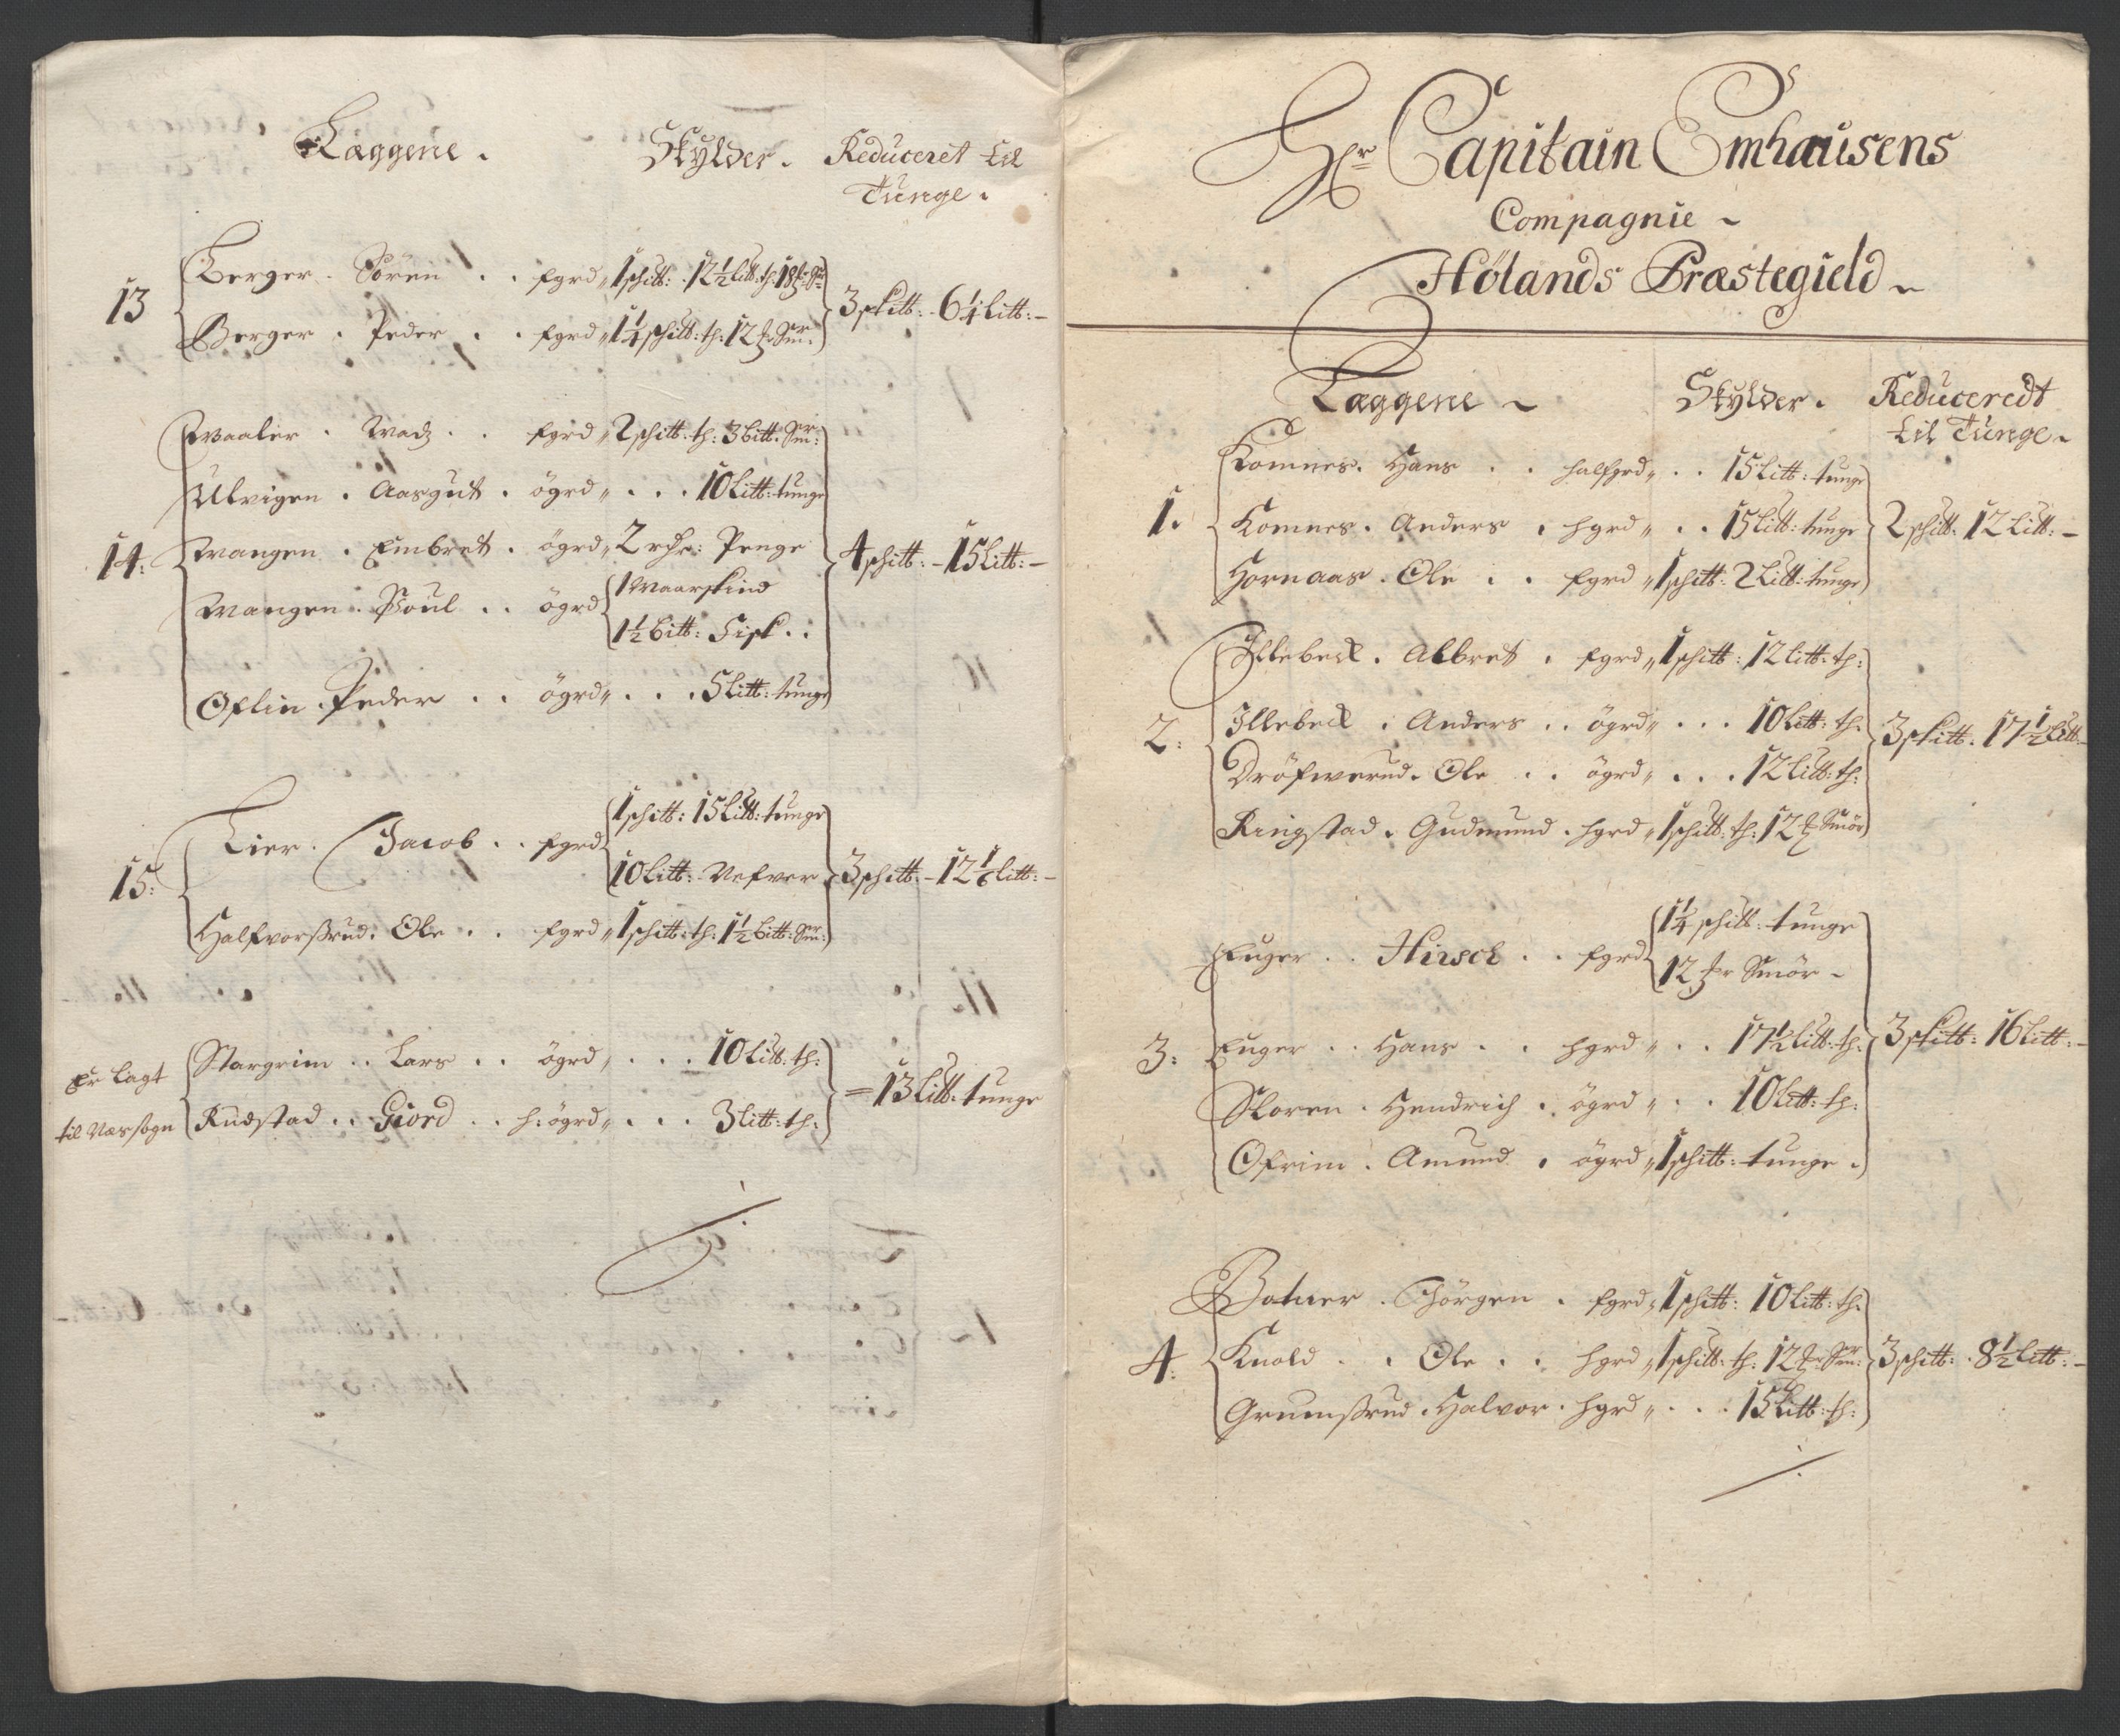 Læggene. Skylder. Reduceret til
Tunge.
13 Berger. Sören . . fgrd „ 1 schitt: 12½ litt: th: 18 Sm:
Berger. Peder . . fgrd „ 1¼ schitt: th: 12 Smr:
3 schitt: - 6¼ litt: -
Waaler. Madz . . fgrd „ 2 schitt: th: 3 bitt: Smr:
Ulvigen. Aasgut. ögrd „ . . . 10 litt: tunge
14: Wangen. Embret. ögrd „ 2 rdr: Penge
4 schitt: - 15 litt: -
Wangen. Poul . . ögrd 1 Waarskind
1½ bitt: Fisk . .
Oflin. Peder . . ögrd „ . . . 5 litt: tunge
15: Lier. Jacob . . fgrd 1 schitt: 15 litt: tunge
10 litt: Nefver
3 schitt: - 12 1/6 litt: -
Halfvorßrud. Ole . . fgrd „ 1 schitt: th: 1½ bitt: Smr:
Er lagt Stargrim . . Lars . . ögrd „ . . . 10 litt: th:
til Næs sogn Rudstad . . Giord . . h: ögrd „ . . . 3 litt: th:
= 13 litt: tunge
Hr Capitain Emhausens
Compagnie
Hölands Præstegield
Læggene Skylder. Reduceredt
til Tunge
Komnes. Hans . . halfgrd „ . . 15 litt: tunge
1. Komnes. Anders . hgrd „ . . 15 litt: tunge
2 schitt: 12 litt: -
Hornaas. Ole . . fgrd „ 1 schitt: 2 litt: tunge
Illebeck. Albret . fgrd „ 1 schitt: 12 litt: th:
2: Illebeck . Anders . . ögrd „ . . . 10 litt: th:
3 schitt: 17½ litt -
Dröfwerud. Ole . . ögrd „ . . . 12 litt: th:
Ringstad. Gudmund. hgrd „ 1 schitt: th: 12 Smör
Euger . . Hirsch . . fgrd 1¼ schitt: tunge
12 Smör -
3: Euger . . Hans . . hgrd „ . . 17½ litt: th:
3 schitt: 16 litt: -
Sloren . Hendrich . . ögrd „ . . 10 litt: th:
Ofrim . Amund . ögrd „ 1 schitt: tunge .
Botner . Jörgen . fgrd „ 1 schitt: 10 litt: th:
4: Knold . . Ole . . hgrd „ 1 schitt: th: 12 Smr:
3 schitt: 8½ litt: -
Grumßrud. Halvor. hgrd „ . . . 15 litt: th: